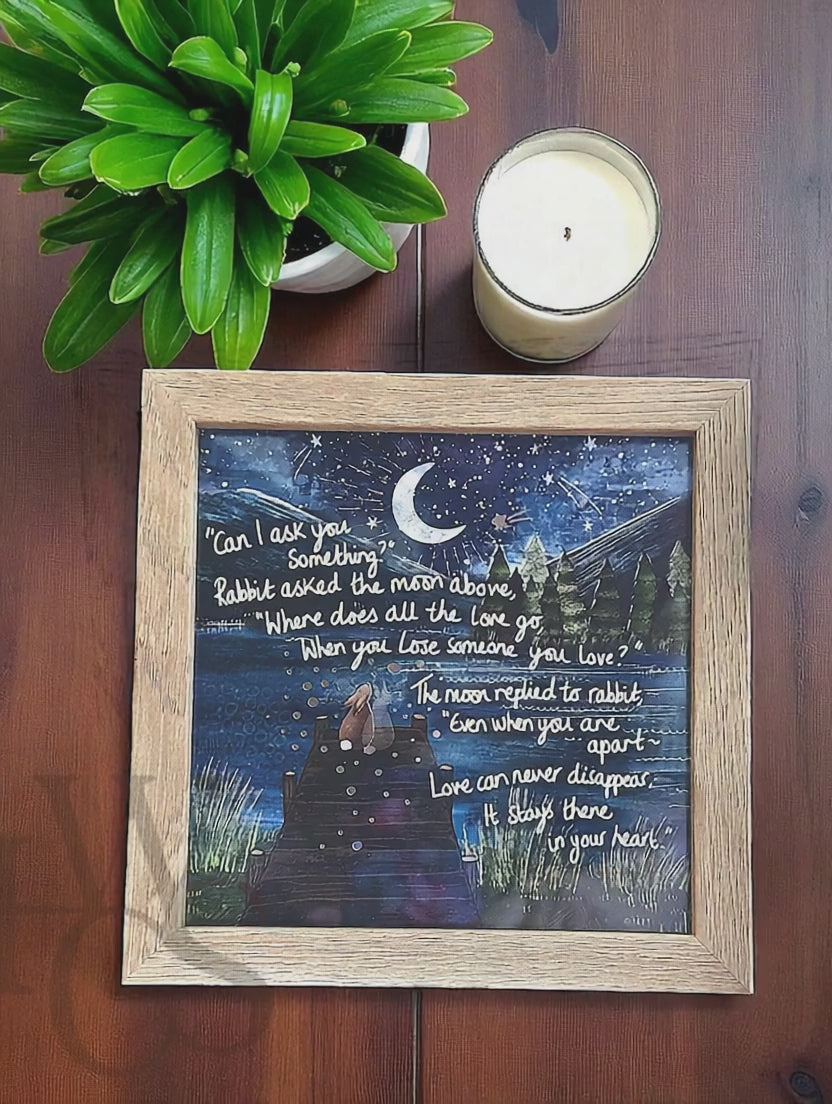 "Can I ask you
Something?"
Rabbit asked the moon above,
"Where does all the love go,
When you Lose someone you love?"
The moon replied to rabbit,
"Even when you are
apart~
Love can never disappear,
It stays there
in your heart."